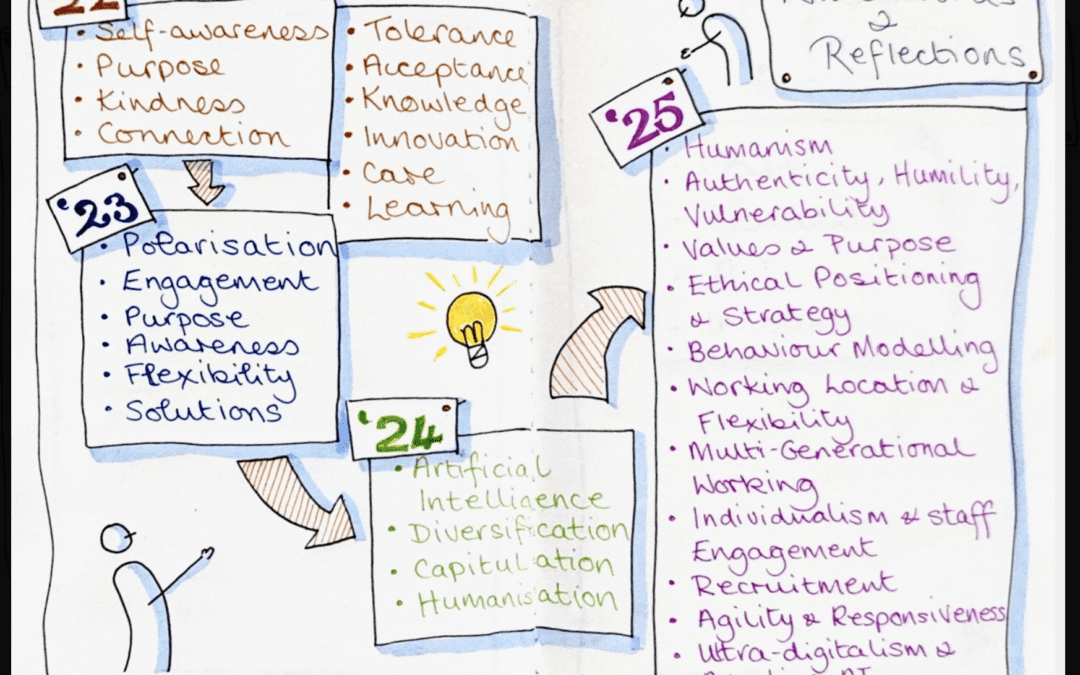 22
• Self-awareness
• Purpose
• Kindness
• Connection
• Tolerance
• Acceptance
• Knowledge
• Innovation
• Care
• Learning
'23
• Polarisation
• Engagement
• Purpose
• Awareness
• Flexibility
• Solutions
'24
• Artificial
Intelligence
• Diversification
• Capitulation
• Humanisation
&
Reflections
'25
• Humanism
• Authenticity, Humility,
Vulnerability
• Values & Purpose
• Ethical Positioning
& Strategy
• Behaviour Modelling
• Working Location &
Flexibility
• Multi-Generational
Working
• Individualism & staff
Engagement
• Recruitment
• Agility & Responsiveness
• Ultra-digitalism &